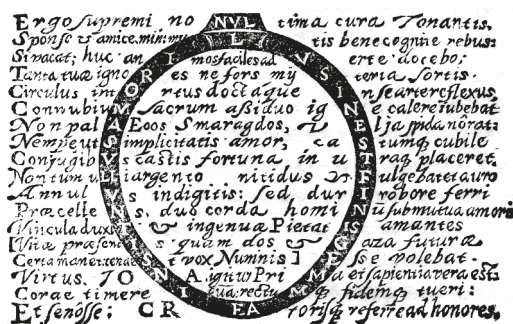 Ergo supremi no NVL tima cura Tonantis,
Sponse & amice, minimu LI tis bene cognite rebus:
Si vacat; huc an mos faciles ad erte docebo;
Tanta tuæ igno R es ne fors mij teria sortis.
Circulus int O rtus doctaque S nse arte reflexus
Connubiu M sacrum aßiduo ig N e calere iubebat
Non pal A Eoos Smaragdos, & E l jaspida nôrat:
Nempe ut S implicitatis amor, ca S tumq cubile
Conjugib V s castis fortuna in u T raq placeret.
Non tum ul L i argento nitidus & F ulgebat et auro
Annul s indigitis: sed dur I robore ferri
Præcelle N s, duo corda homi N u sub mutua amoris
Vincula duxi T & ingenuæ Pietat S amantes
[Vitæ præsen s quam dos & aza futuræ
Certa manet, t vox Numnis] sse volebat.
Virtus. IO A. ignis Pri M a et sapientia vera est:
Coræ timere rectu M q fidemq tueri:
Et senosse; CR EA torisq referre ad honores.